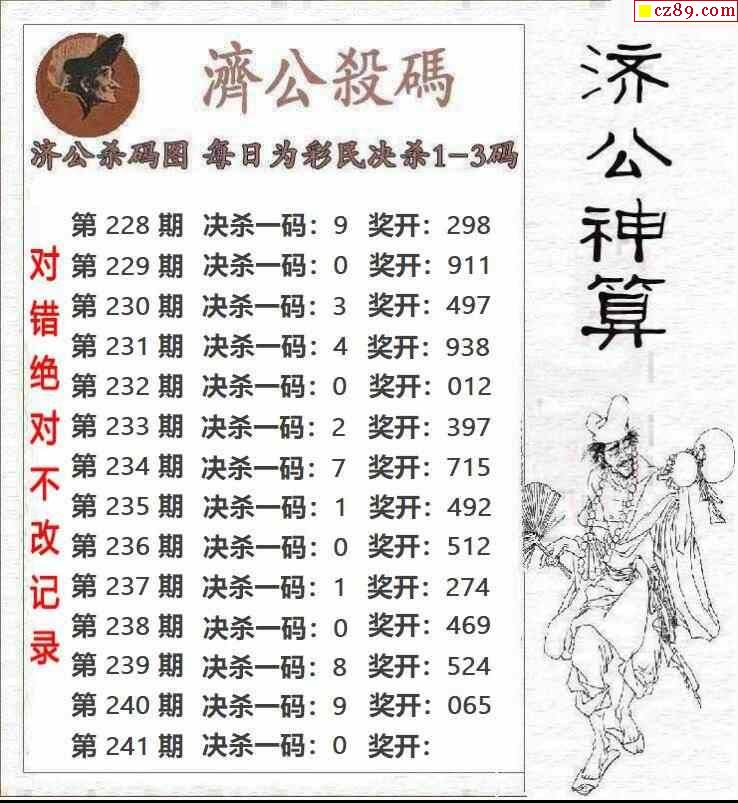 cz89.com
濟公殺碼
济公杀码图 每日为彩民决杀1-3码
第 228 期 决杀一码：9 奖开：298
第 229 期 决杀一码：0 奖开：911
第 230 期 决杀一码：3 奖开：497
第 231 期 决杀一码：4 奖开：938
第 232 期 决杀一码：0 奖开：012
第 233 期 决杀一码：2 奖开：397
第 234 期 决杀一码：7 奖开：715
第 235 期 决杀一码：1 奖开：492
第 236 期 决杀一码：0 奖开：512
第 237 期 决杀一码：1 奖开：274
第 238 期 决杀一码：0 奖开：469
第 239 期 决杀一码：8 奖开：524
第 240 期 决杀一码：9 奖开：065
第 241 期 决杀一码：0 奖开：
对错绝对不改记录
济公神算